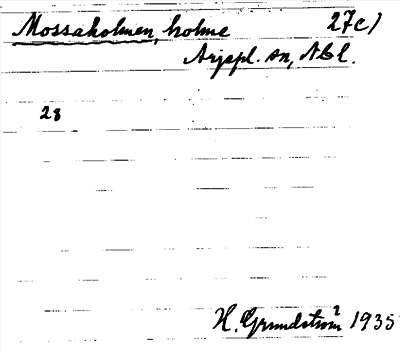 Mossaholmen, holme 27c)
Arjepl. sn, Nbl.
28
H. Grundström 1935